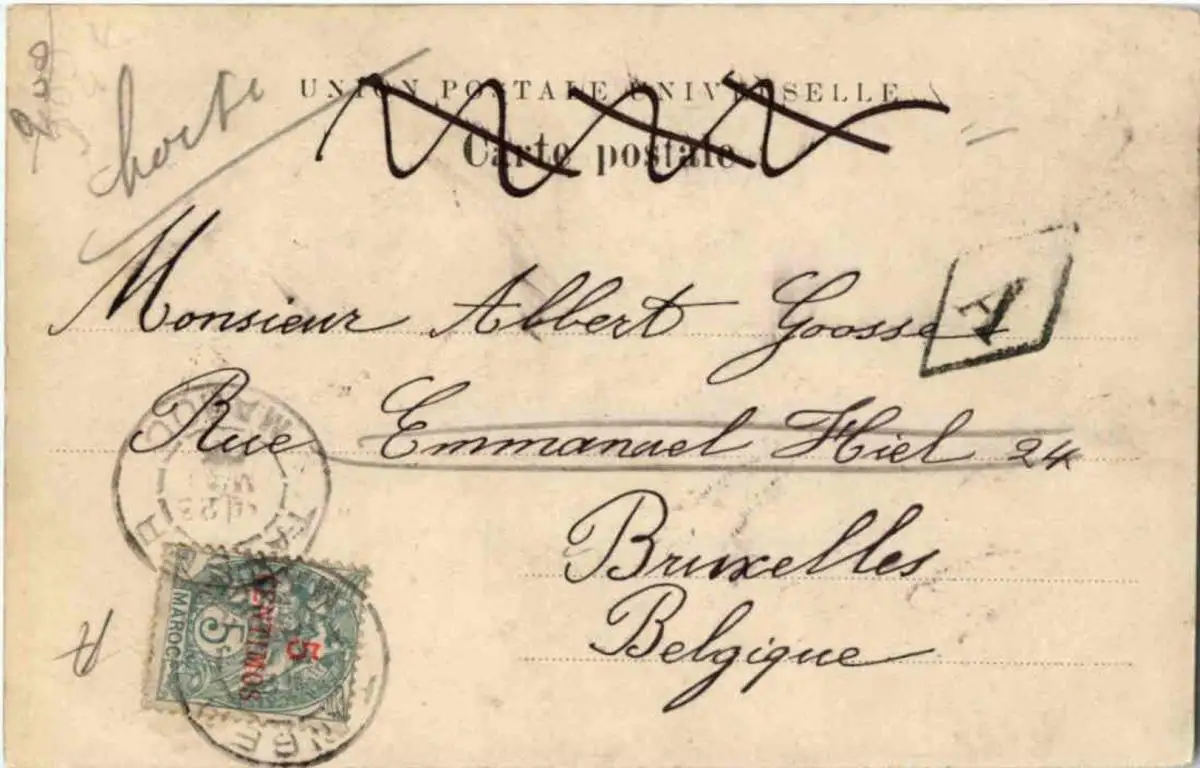 200
UNION POSTALE UNIVERSELLE
Carte postale
Monsieur Albert Goossens
Rue Emmanuel Hiel 24
Bruxelles
Belgique
MAROC
TANGER
MAROC
5c
5
CENTIMOS
A